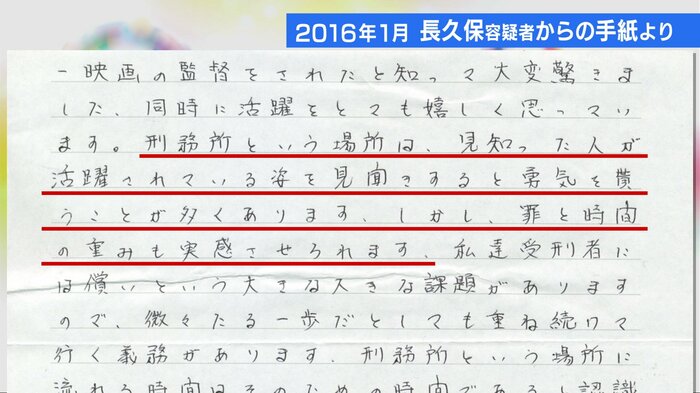 2016年1月 長久保容疑者からの手紙より
一映画の監督をされたと知って大変驚きま
した、同時に活躍をとても嬉しく思ってい
ます。刑務所という場所は、見知った人が
活躍されている姿を見聞きすると勇気を貰
うことが多くあります、しかし、罪と時間
の重みも実感させられます、私達受刑者に
は償いという大きな大きな課題があります
ので、微々たる一歩だとしても重ね続けて
行く義務があります、刑務所という場所に
流れる時間はそのための時間であると認識